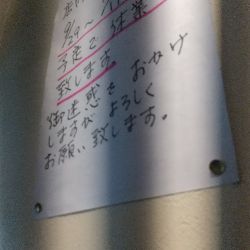 9/29〜
予定で 休業
致します
御迷惑を おかけ
しますが よろしく
お願い致します。